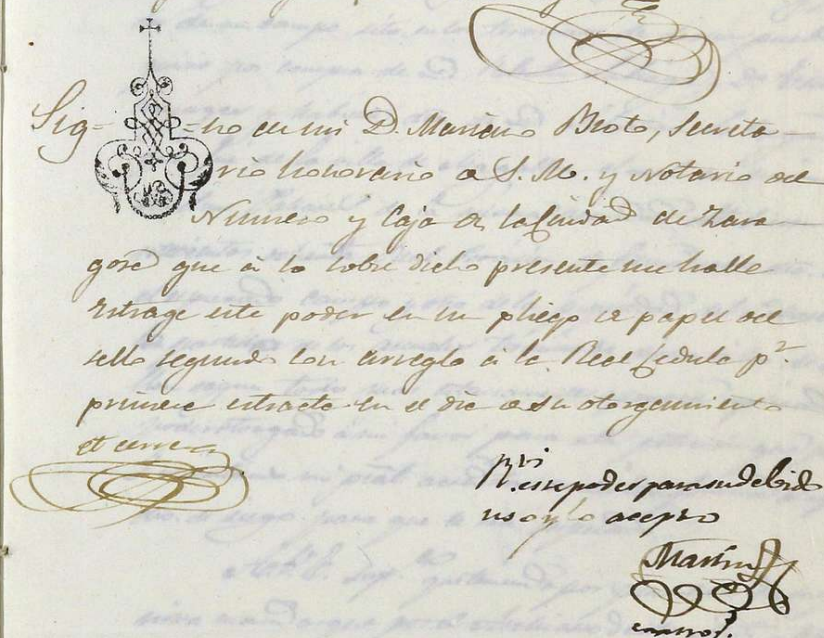 Sig= =no de mi D. Mariano Broto, Secreta-
rio honorario de S. M. y Notario del
Numero y Caja de la Ciudad de Zara
goza que à lo sobre dicho presente me halle
Estrage este poder en un pliego de papel del
sello segundo con arreglo à la Real Cedula pr.
primera estracto en el dia de su otorgamiento
et cerre
Rvi. este poder para su debido
uso y lo acepto